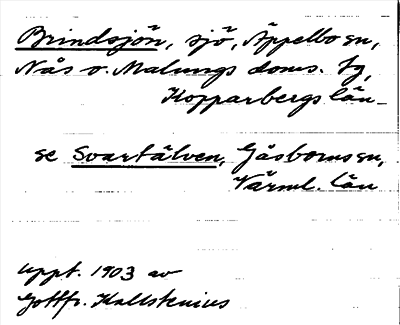 Brindsjön, sjö, Äppelbo sn,
Nås o. Malungs doms. tg,
Kopparbergs län_
se Svartälven, Gåsborns sn,
Värml. län
uppt. 1903 av
Gottfr. Kallstenius